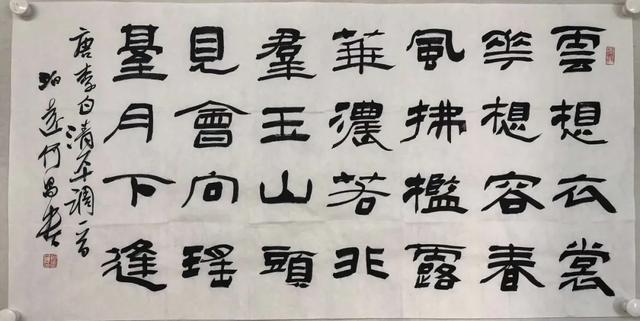 雲想衣裳
花想容春
風拂檻露
華濃若非
羣玉山頭
見會向瑤
臺月下逢
唐李白清平調一首
何昌